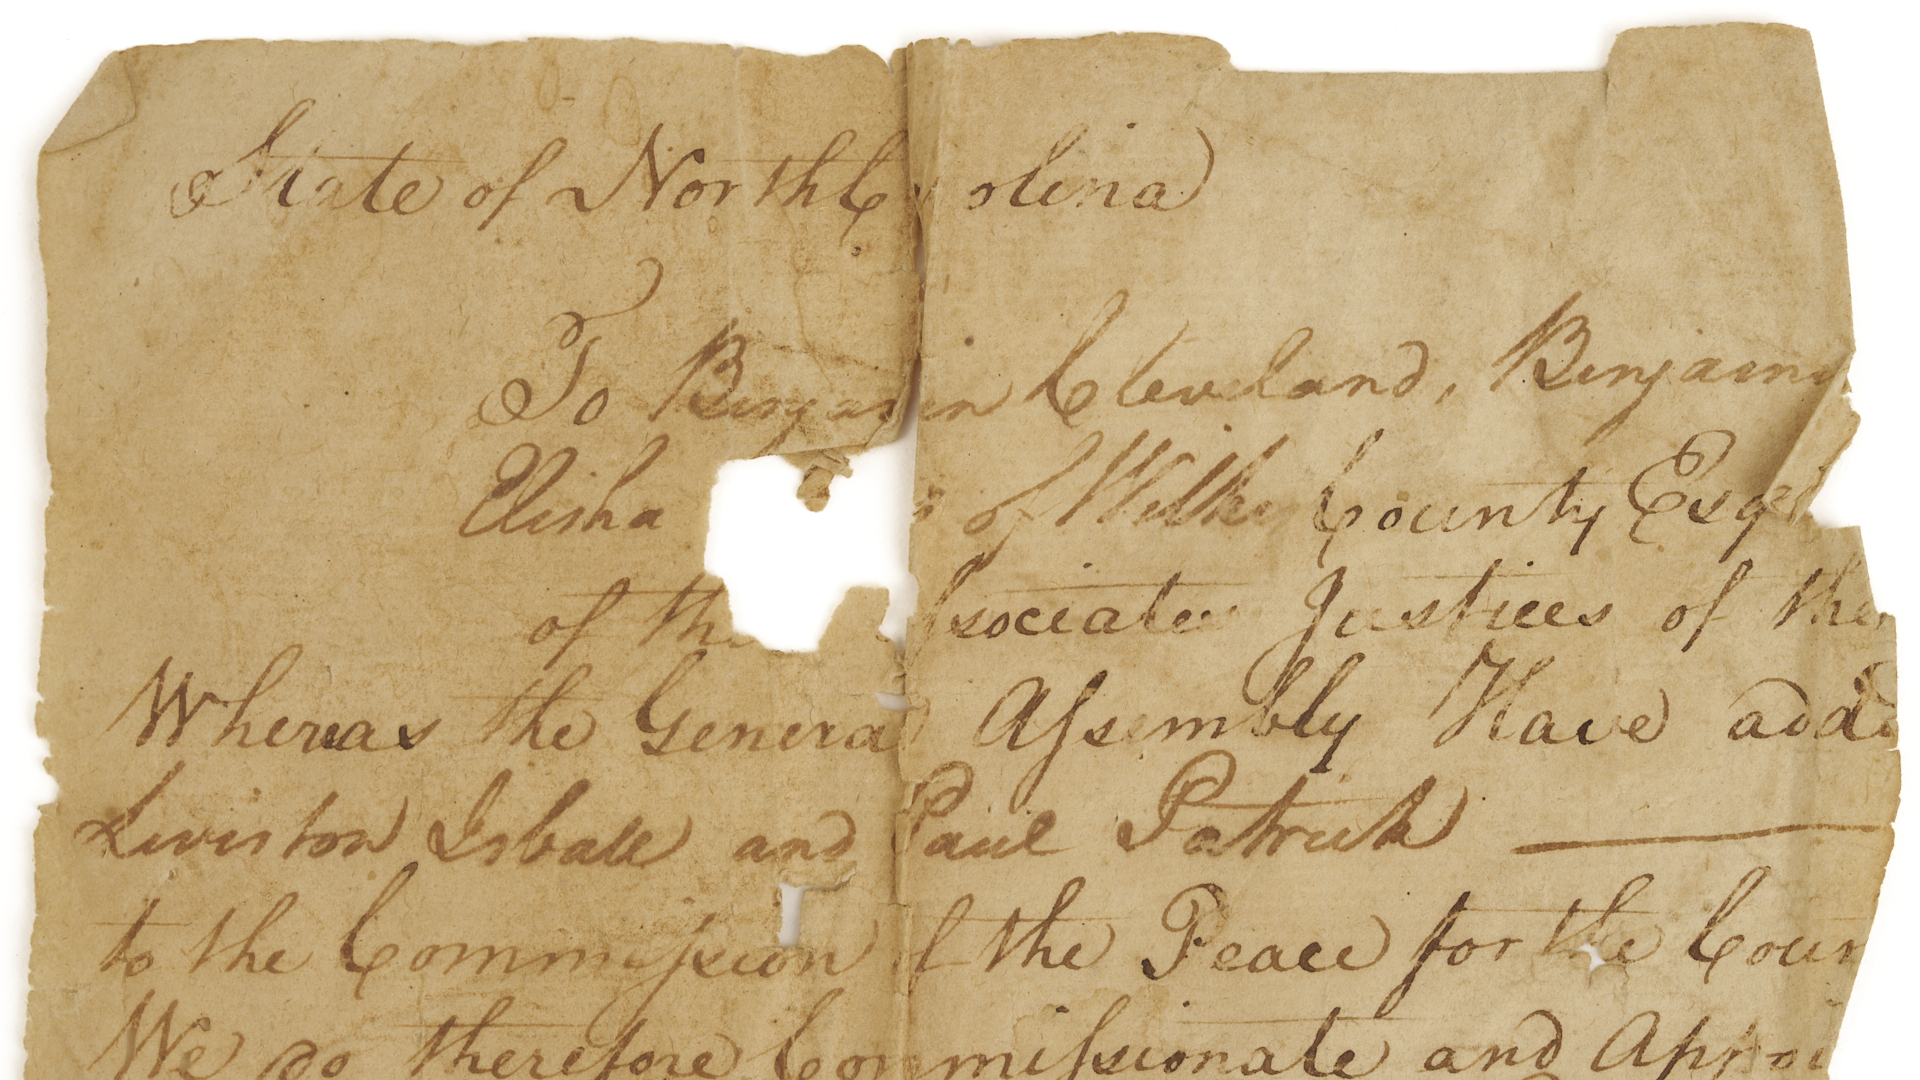 State of North C olina
To Benjamin Cleveland, Benjamin
Elisha of Wilkes County Esqr
of the Associates Justices of the
Whereas the General Assembly Have adde
Liviston Isball and Paul Patrick
to the Commission of the Peace for the Coun
We do therefore Commissionate and Appoi